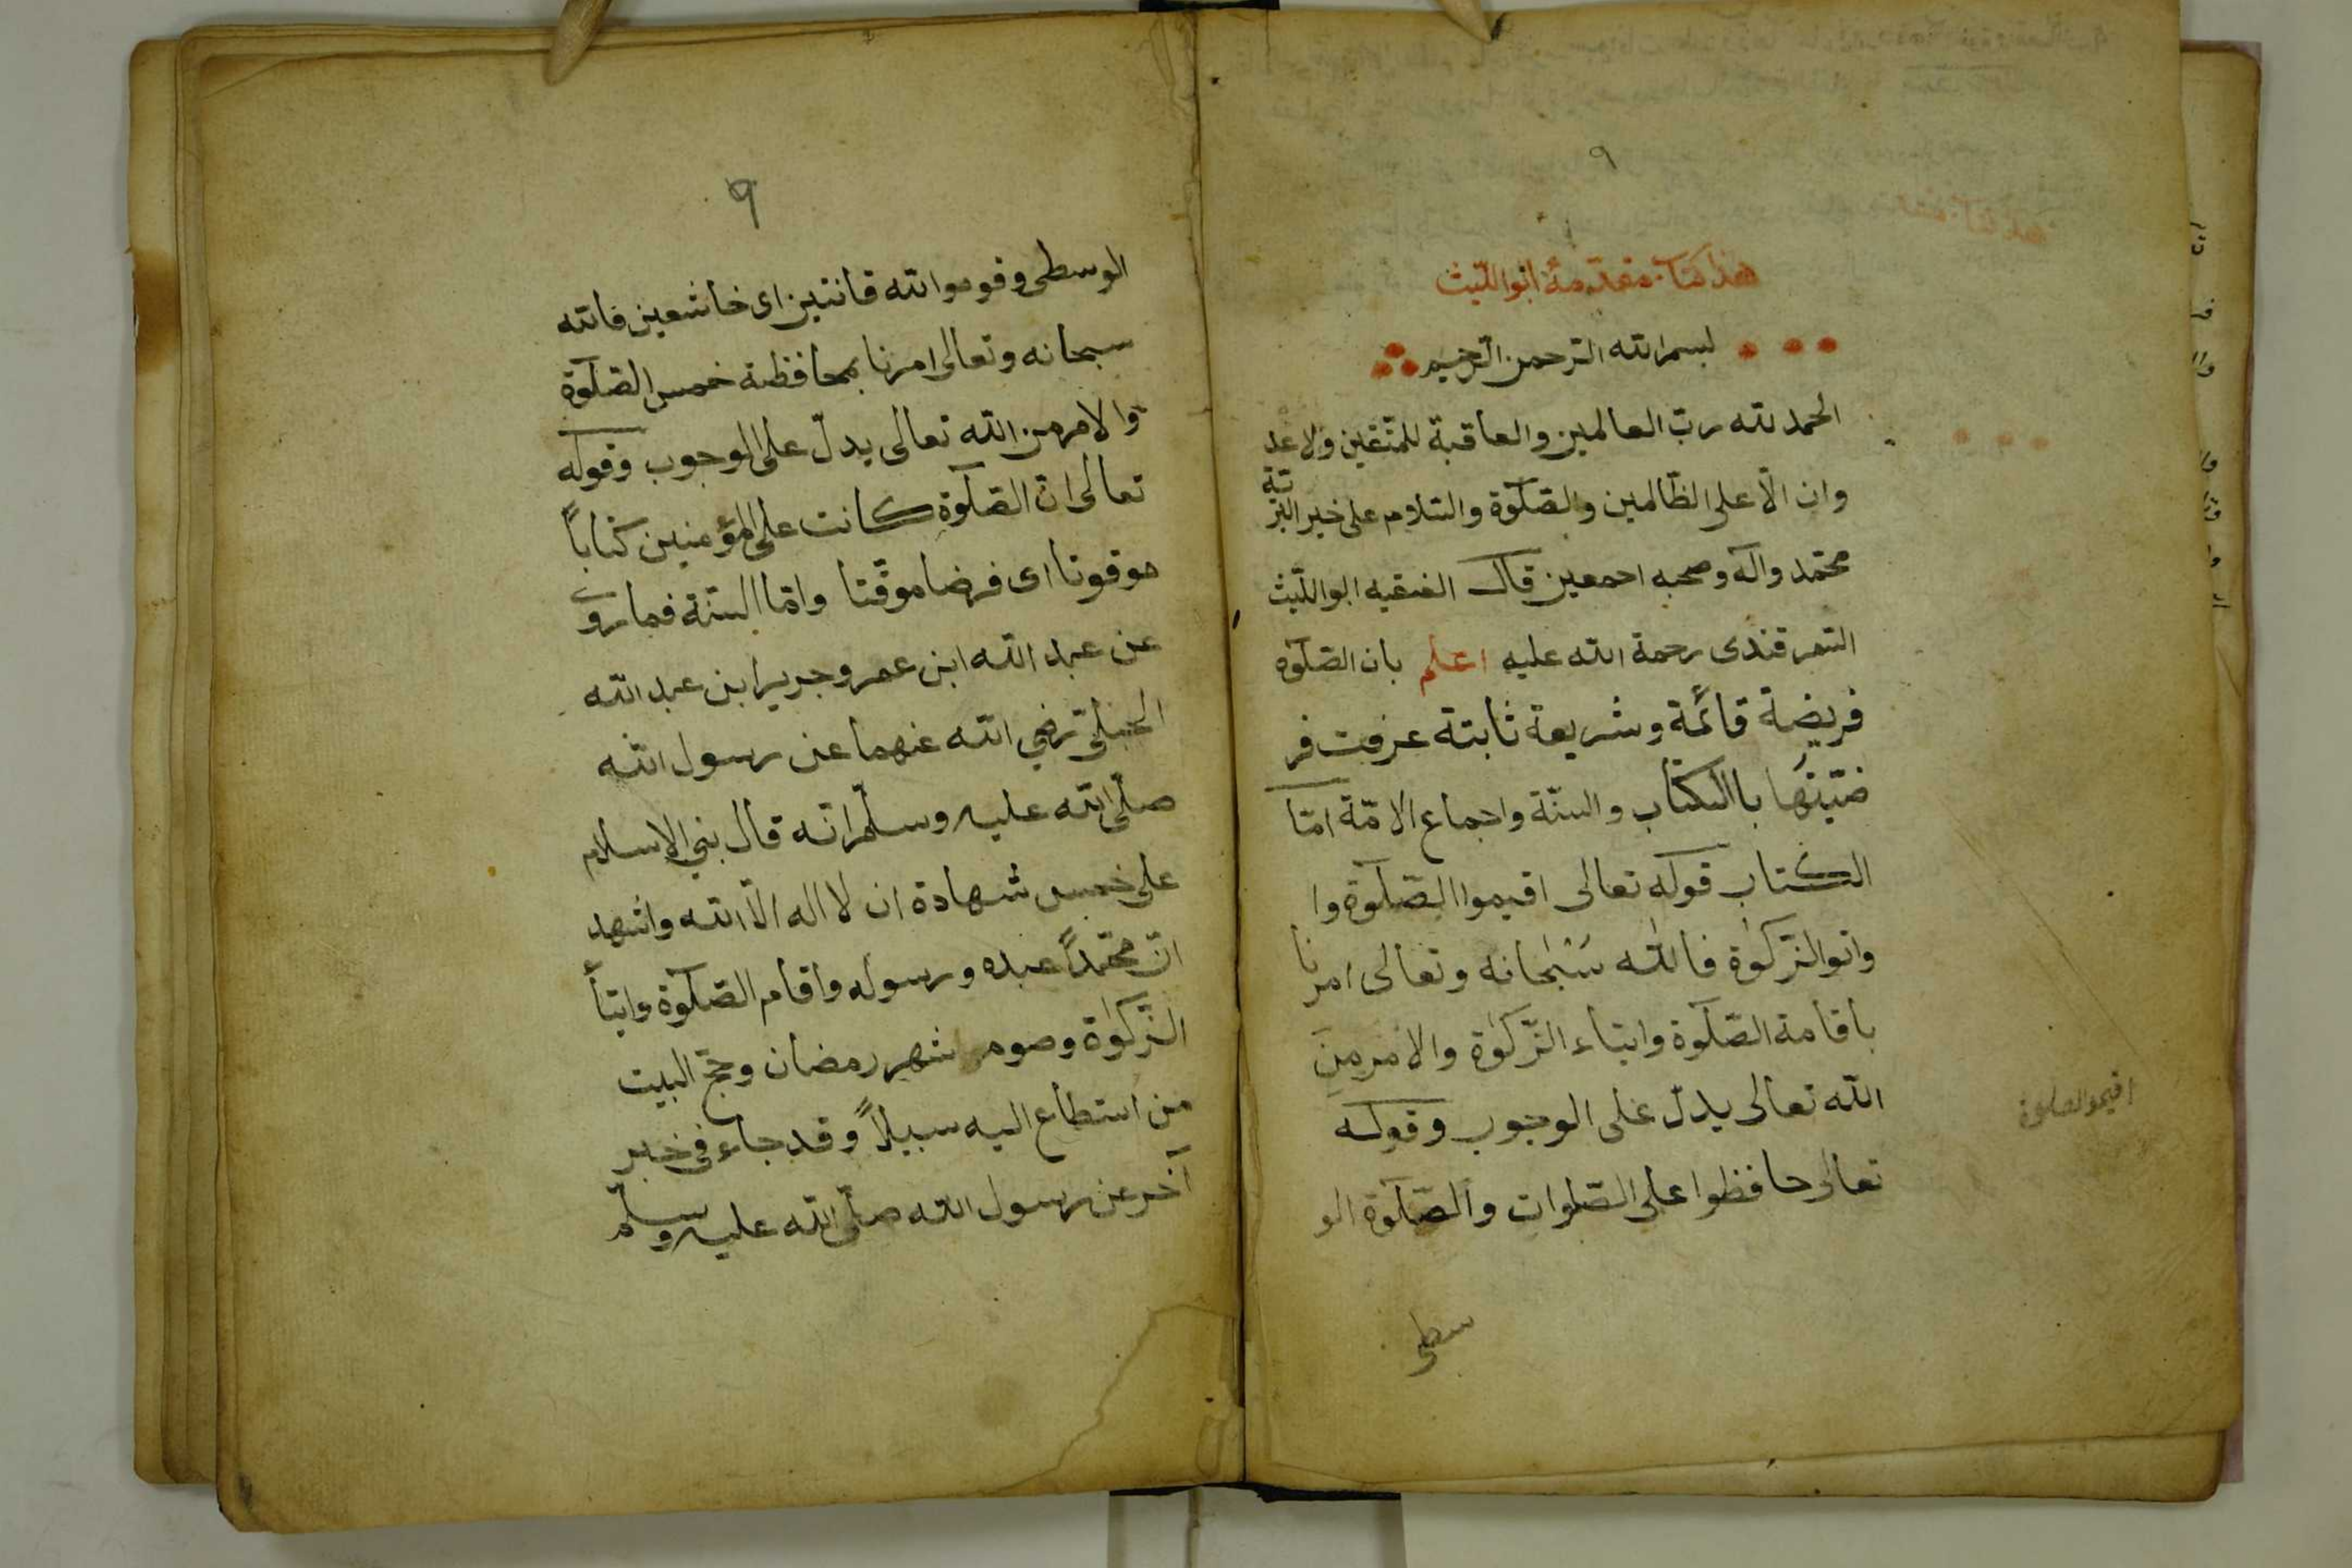 ٩
هذا كتاب مقدّمة ابو اللّيث
بسم الله الرّحمن الرّحيم
الحمد لله ربّ العالمين والعاقبة للمتّقين ولا عد
وان الّا على الظّالمين والصّلٰوة والسّلام على خير البر
يّة
محمّد وآله وصحبه اجمعين قال الفقيه ابو اللّيث
السّمرقندى رحمة الله عليه اعلم بان الصّلٰوة
فريضة قائمة وشريعة ثابتة عرفت فر
ضيّتها باالكتاب والسنّة واجماع الامّة امّا
الكتاب قوله تعالى اقيموا الصّلٰوة وا
واتوالزّكٰوة فالله سُبْحانه وتعالى امرنا
باقامة الصّلٰوة وايتاء الزّكٰوة والامر مِنَ
الله تعالى يدلّ على الوجوب وقوله
تعالى حافظوا على الصّلوات والصّلٰوة الو
سطى
اقيموالصلوة
٩
الوسطى وقوموا لله قانتين اى خاشعين فالله
سبحانه وتعالى امرنا بمحافظة خمس الصّلٰوة
والامر من الله تعالى يدلّ على الوجوب وقوله
تعالى انّ الصّلٰوة كانت على المؤمنين كتاباً
موقوتا اى فرضا موقّتا وامّا السنّة فما روى
عن عبد الله ابن عمر وجرير ابن عبد الله
رضي الله عنهما عن رسول الله
صلّى الله عليه وسلّم انّه قال بني الاسلام
على خمس شهادة ان لا اله الّا الله واشهد
انّ محمّداً عبده ورسوله واقام الصّلٰوة وايتأ
الزّكٰوة وصوم شهر رمضان وحجّ البيت
من استطاع اليه سبيلاً وقد جاء فى خبر
آخر عن رسول الله صلّى الله عليه وسلّم